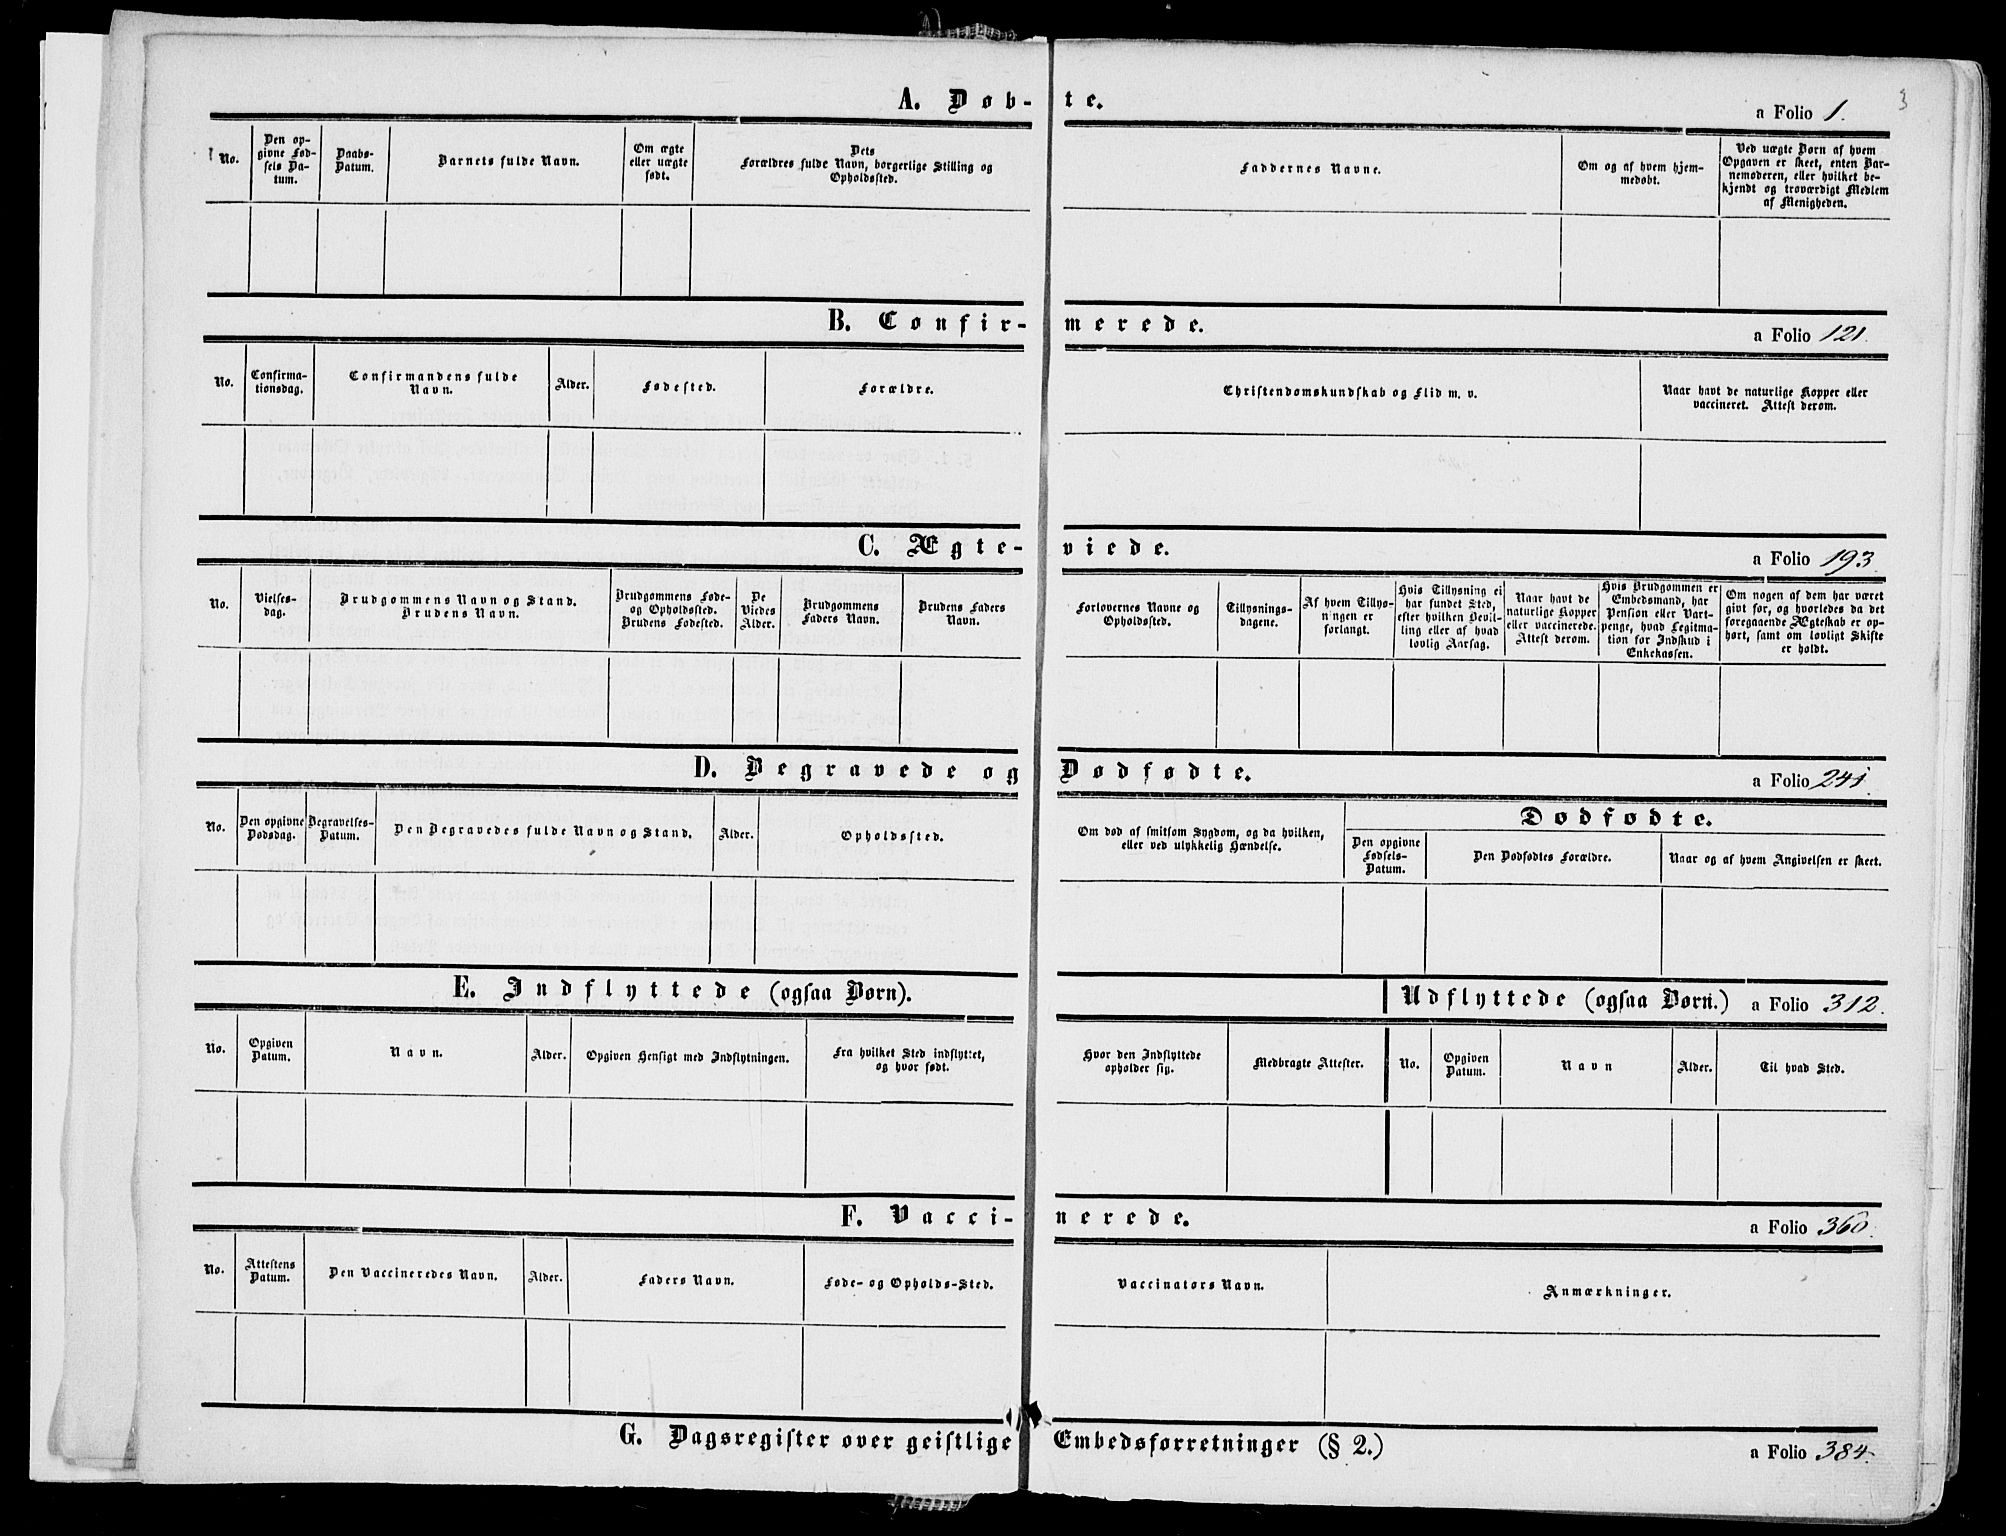 3
A. Døb-te.
a Folio 1.
No.
Den op-
givne Fød-
sels Da-
tum.
Daabs-
Datum.
Barnets fulde Navn.
Om ægte
eller uægte
født.
Dets
Forældres fulde Navn, borgerlige Stilling og
Opholdssted.
Faddernes Navne.
Om og af hvem hjem-
medøbt.
Ved uægte Børn af hvem
Opgaven er skeet, enten Bar-
nemoderen, eller hvilket be-
kjendt og troværdigt Medlem
af Menigheden.
B. Confir-merede.
a Folio 121.
No.
Confirma-
tionsdag.
Confirmandens fulde
Navn.
Alder.
Fødested.
Forældre.
Christendomskundskab og Flid m. v.
Naar havt de naturlige Kopper eller
vaccineret. Attest derom.
C. Ægte-viede.
a Folio 193.
No.
Vielses-
dag.
Brudgommens Navn og Stand.
Brudens Navn.
Brudgommens Føde-
og Opholdssted.
Brudens Fødested.
De
Viedes
Alder.
Brudgommens
Faders Navn.
Brudens Faders
Navn.
Forlovernes Navne og
Opholdssted.
Tillysnings-
dagene.
Af hvem Tillys-
ningen er
forlangt.
Hvis Tillysning ei
har fundet Sted,
efter hvilken Bevil-
ling eller af hvad
lovlig Aarsag.
Naar havt de
naturlige Kopper
eller vaccinerede.
Attest derom.
Hvis Brudgommen er
Embedsmand, har
Pension eller Vart-
penge, hvad Legitima-
tion for Indskud i
Enkekassen.
Om nogen af dem har været
givt før, og hvorledes da det
foregaaende Ægteskab er op-
hørt, samt om lovligt Skifte
er holdt.
D. Begravede og Dødfødte.
a Folio 241.
No.
Den opgivne
Dødsdag.
Begravelses-
Datum.
Den Begravedes fulde Navn og Stand.
Alder.
Opholdssted.
Om død af smitsom Sygdom, og da hvilken,
eller ved ulykkelig Hændelse.
Dødfødte.
Den opgivne
Fødsels-
Datum.
Den Dødfødtes Forældre.
Naar og af hvem Angivelsen er skeet.
E. Indflyttede (ogsaa Børn).
Udflyttede (ogsaa Børn.)
a Folio 312.
No.
Opgiven
Datum.
Navn.
Alder.
Opgiven Hensigt med Indflytningen.
Fra hvilket Sted indflyttet,
og hvor født.
Hvor den Indflyttede
opholder sig.
Medbragte Attester.
No.
Opgiven
Datum.
Navn
Alder.
Til hvad Sted.
F. Vacci-nerede.
a Folio 360.
No.
Attestens
Datum.
Den Vaccineredes Navn.
Alder.
Faders Navn.
Føde- og Opholds-Sted.
Vaccinators Navn.
Anmærkninger.
G. Dagsregister over geistlige Embedsforretninger (§ 2.)
a Folio 384.